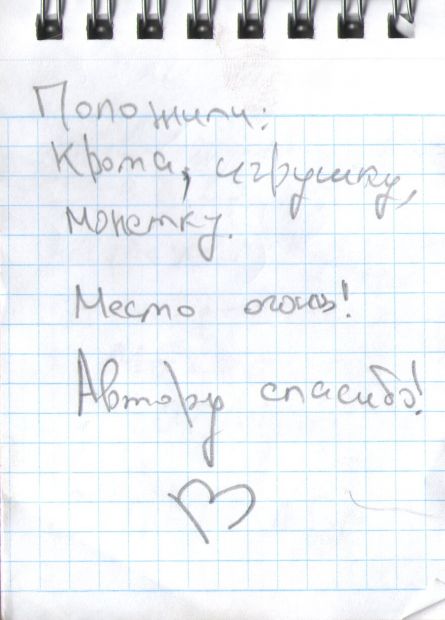 Положили:
Крота, игрушку,
монетку.
Место огонь!
Автору спасибо!